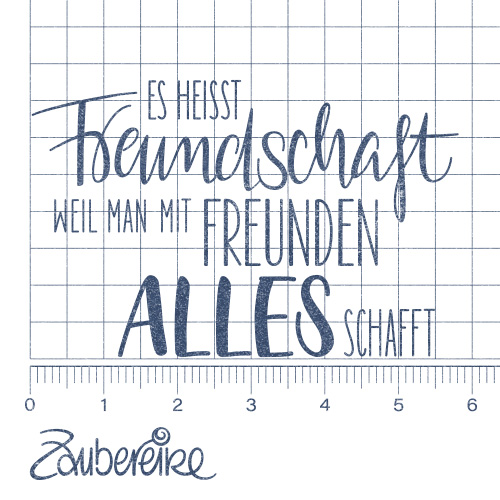 ES HEISST
Freundschaft
WEIL MAN MIT FREUNDEN
ALLES SCHAFFT
0 1 2 3 4 5 6
Zaubereike